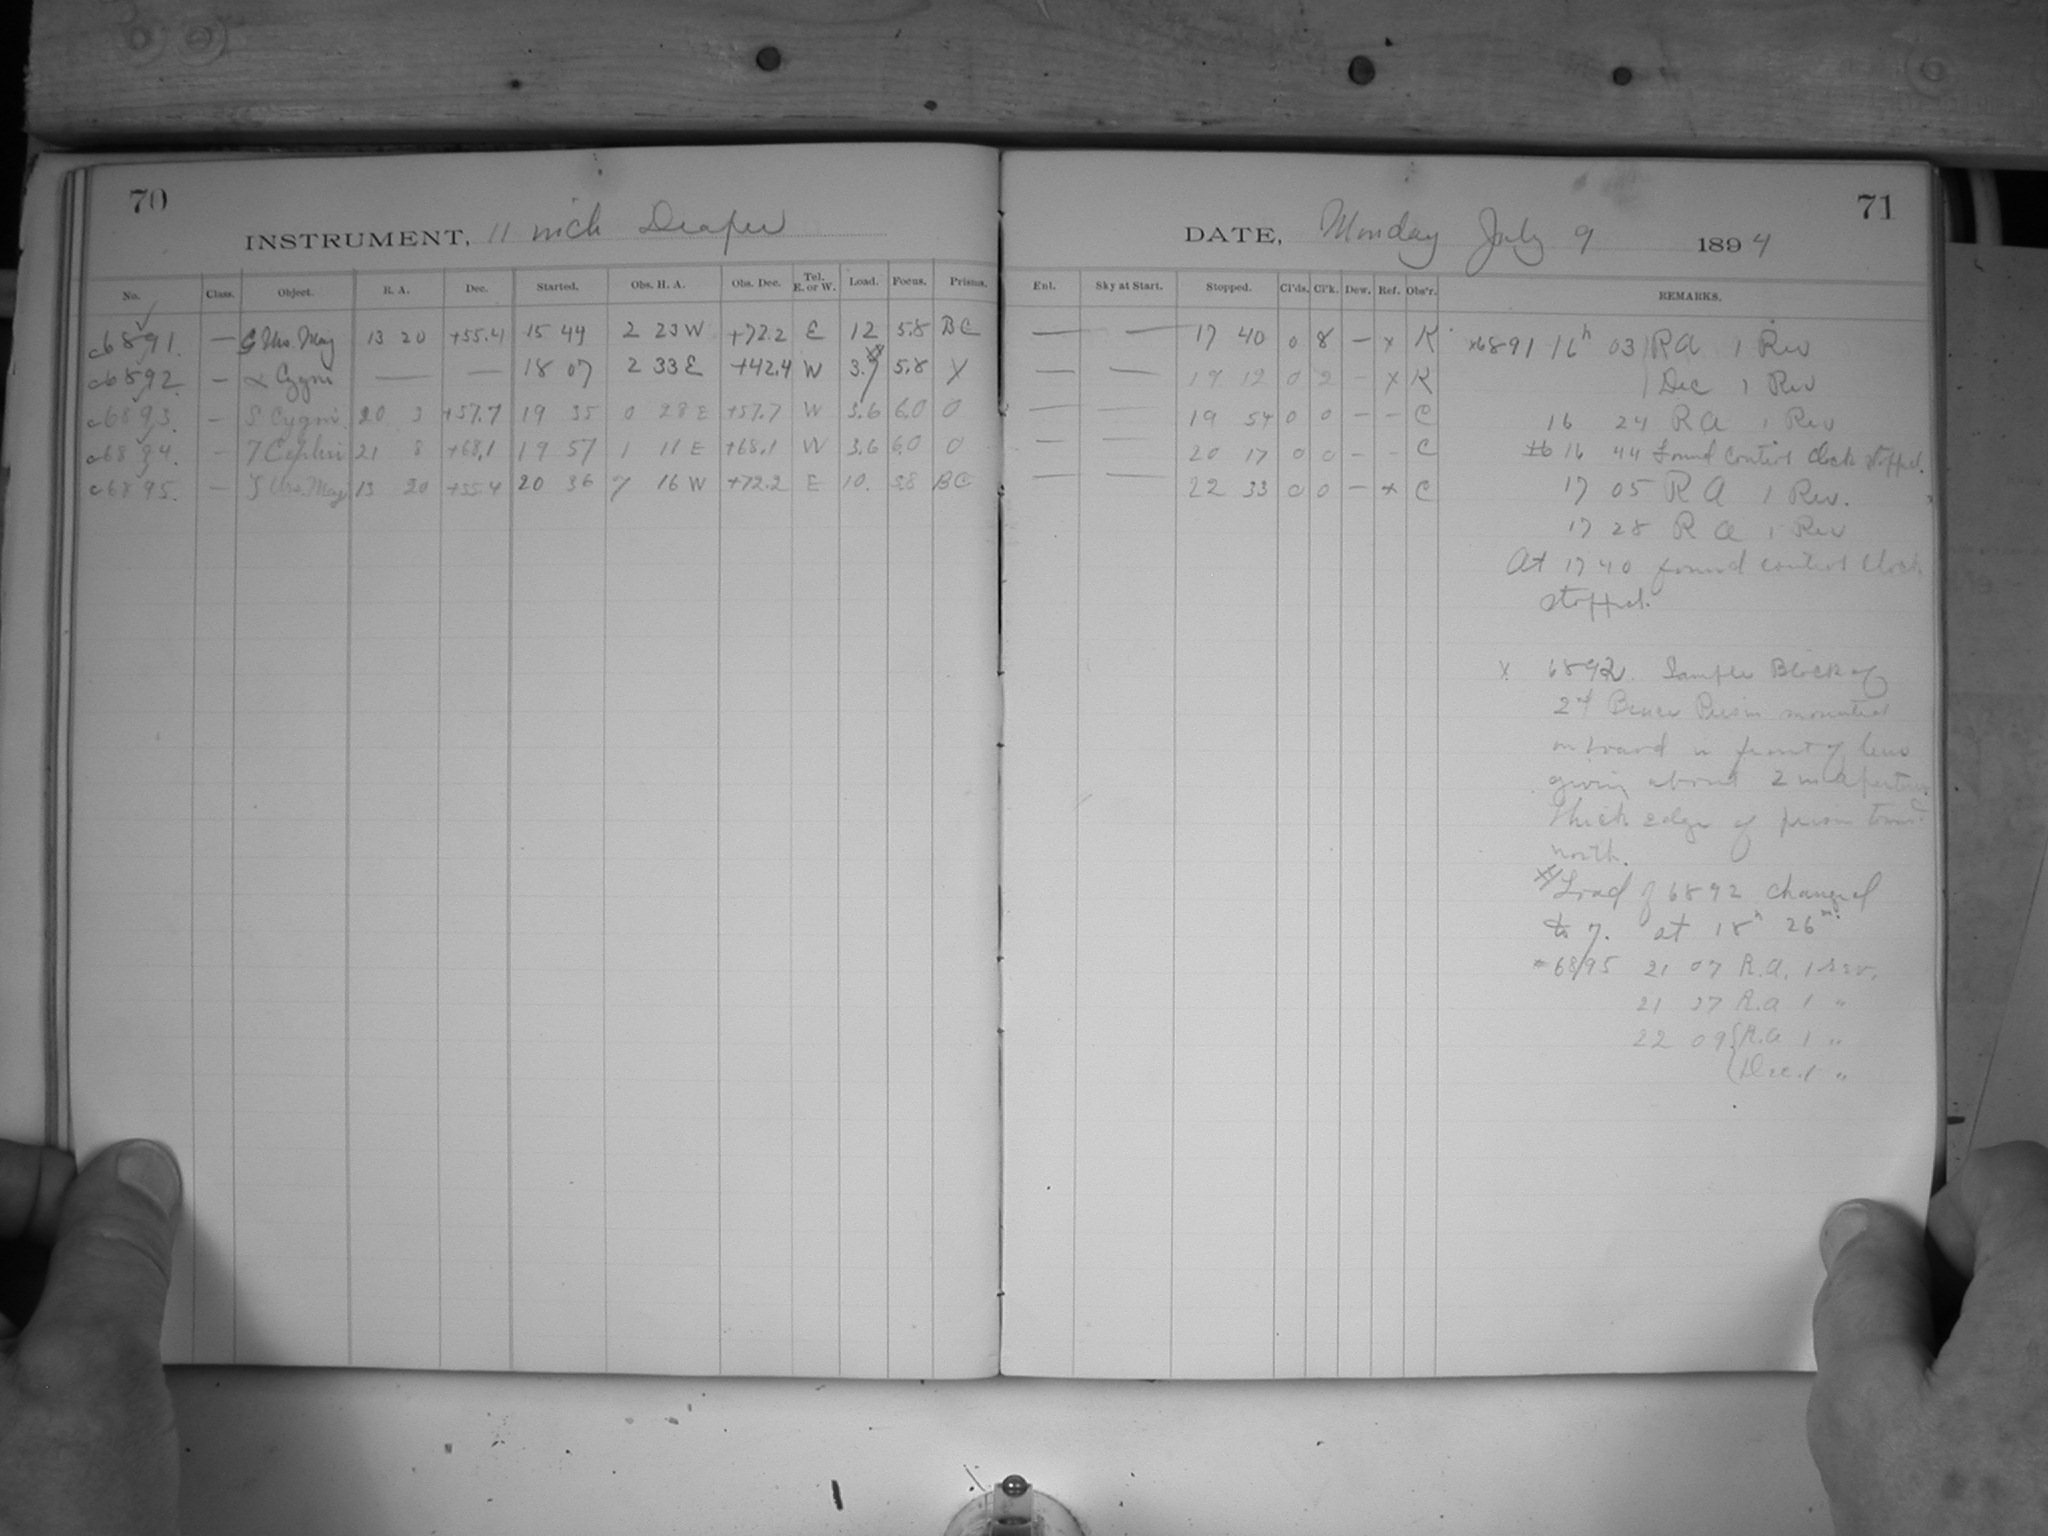 70
INSTRUMENT, 11 inch Draper
No. Class. Object. R. A. Dec. Started. Obs. H. A. Obs. Dec. Tel. E. or W. Load. Focus. Prisms.
c6891. — Urs. Maj 13 20 +55.4 15 44 2 23 W +72.2 E 12 5.8 BC
c6892. — α Cygni — — 18 07 2 33 E +42.4 W 3. 5.8 X
c6893. — S Cygni 20 3 +57.7 19 35 0 28 E +57.7 W 3.6 6.0 0
c6894. — T Cephei 21 8 +68.1 19 57 1 11 E +68.1 W 3.6 6.0 0
c6895. — Urs. Maj 13 20 +55.4 20 36 7 16 W +72.2 E 10. 5.8 BC
71
DATE, Monday July 9 1894
Enl. Sky at Start. Stopped. Cl'ds. Cl'k. Dew. Ref. Obs'r. REMARKS.
— — 17 40 0 8 — x K
— — 19 12 0 2 — x K
— — 19 54 0 0 — — C
— — 20 17 0 0 — — C
— — 22 33 0 0 — x C
x6891 16h 03 RA 1 Rev
Dec 1 Rev
16 24 RA 1 Rev
16 44 found control clock stopped.
17 05 RA 1 Rev.
17 28 RA 1 Rev
At 17 40 found control clock
stopped.
x 6892. Sample Block of
2d Bruce Prism mounted
on board in front of lens
giving about 2 in aperture
thick edge of prism toward
north.
Load of 6892 changed
to 7. at 18h 26m.
6895 21 07 R.A. 1 rev.
21 27 R.A 1 "
22 09 R.A 1 "
Dec. 1 "